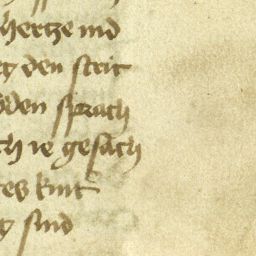 hertze ind
den strit
den sprach
ch ie gesach
kint
sind